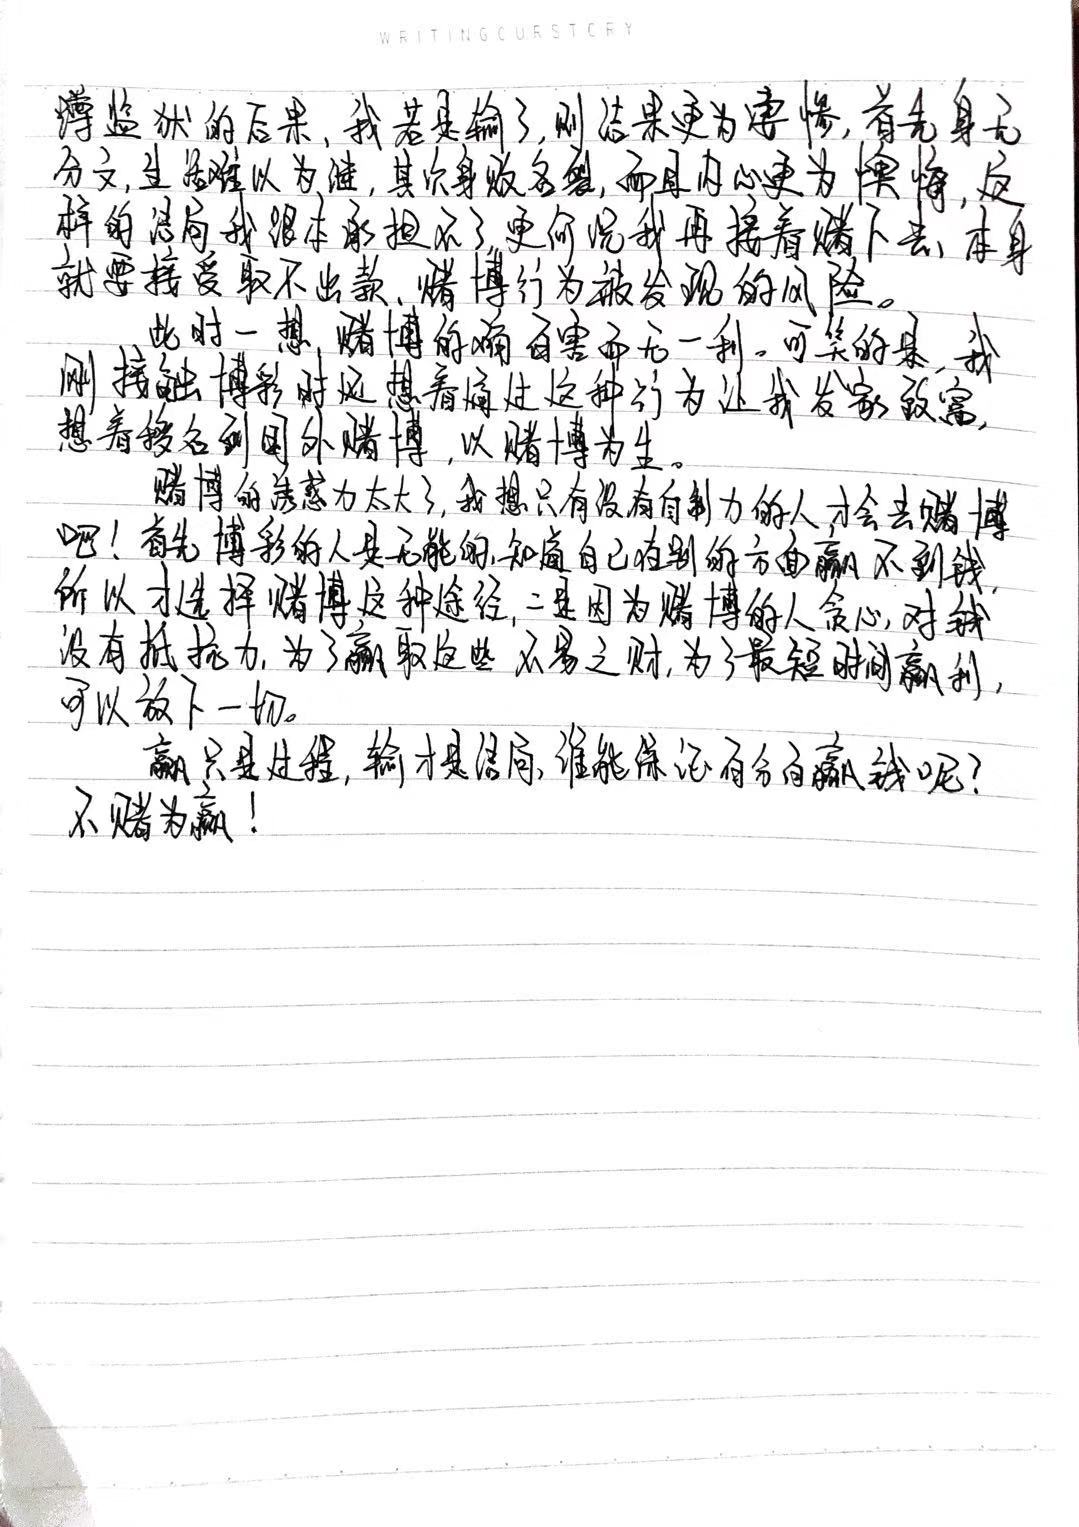 WRITINGCURSTCRY
蹲监狱的后果，我若是输了，则结果更为凄惨，首先身无
分文，生活难以为继，其次身败名裂，而且内心更为懊悔，反
样的结局我跟本承担不了，更何况我再接着赌下去，本身
就要接受取不出款、赌博行为被发现的风险。
此时一想，赌博的确百害而无一利。可笑的是，我
刚接触博彩时还想着通过这种行为让我发家致富，
想着移名到国外赌博，以赌博为生。
赌博的诱惑力太大了，我想只有没有自制力的人才会去赌博
吧！首先博彩的人是无能的，知道自己在别的方面赢不到钱，
所以才选择赌博这种途径，二是因为赌博的人贪心，对钱
没有抵抗力，为了赢取这些不易之财，为了最短时间赢利，
可以放下一切。
赢只是过程，输才是结局，谁能保证百分百赢钱呢？
不赌为赢！